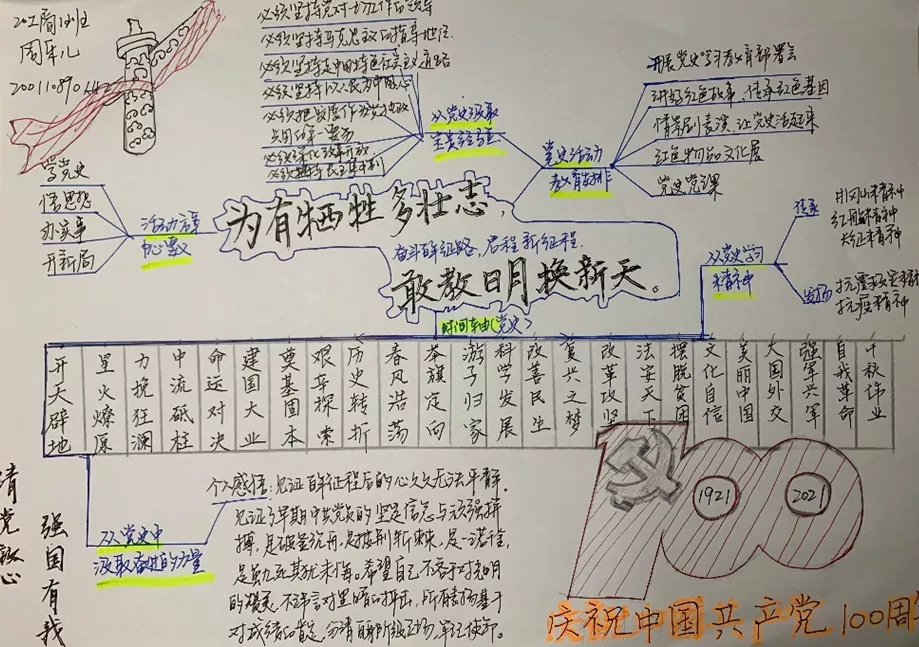 20工商1班
周年儿
必须坚持党对一切工作的领导
必须坚持马克思主义的指导地位
必须坚持走中国特色社会主义道路
必须坚持以人民为中心
必须把发展作为执政
第一要务
必须深化改革开放
从党史汲取
宝贵经验
党史活动
教育安排
开展党史学习教育部署会
讲好红色故事、传承红色基因
情景剧表演,让党史活起来
红色物品文化展
党史党课
学党史
悟思想
办实事
开新局
活动
中心要义
为有牺牲多壮志,
奋斗百年路,启程新征程.
敢教日月换新天。
从党史学习
精神
传承
井冈山精神
长征精神
发扬
抗疫精神
时间轴(党史)
开天辟地
星火燎原
力挽狂澜
中流砥柱
命运对决
建国大业
奠基固本
艰辛探索
历史转折
春风浩荡
举旗定向
游子归家
科学发展
改善民生
复兴之梦
改革攻坚
法安天下
摆脱贫困
文化自信
美丽中国
大国外交
强军兴军
自我革命
千秋伟业
100
1921
2021
从党史中
汲取奋进的力量
个人感悟:见证百年征程后的心久久无法平静.
见证了早期中共党员的坚定信念与顽强拼
搏,是破釜沉舟,是披荆斩棘,是一诺千金,
是虽九死其犹未悔。希望自己不吝于对光明
的,不讳言对黑暗的抨击,所有表扬基于
对成绩的肯定,分清自身阶级立场,牢记使命.
请党放心
强国有我
庆祝中国共产党100周年